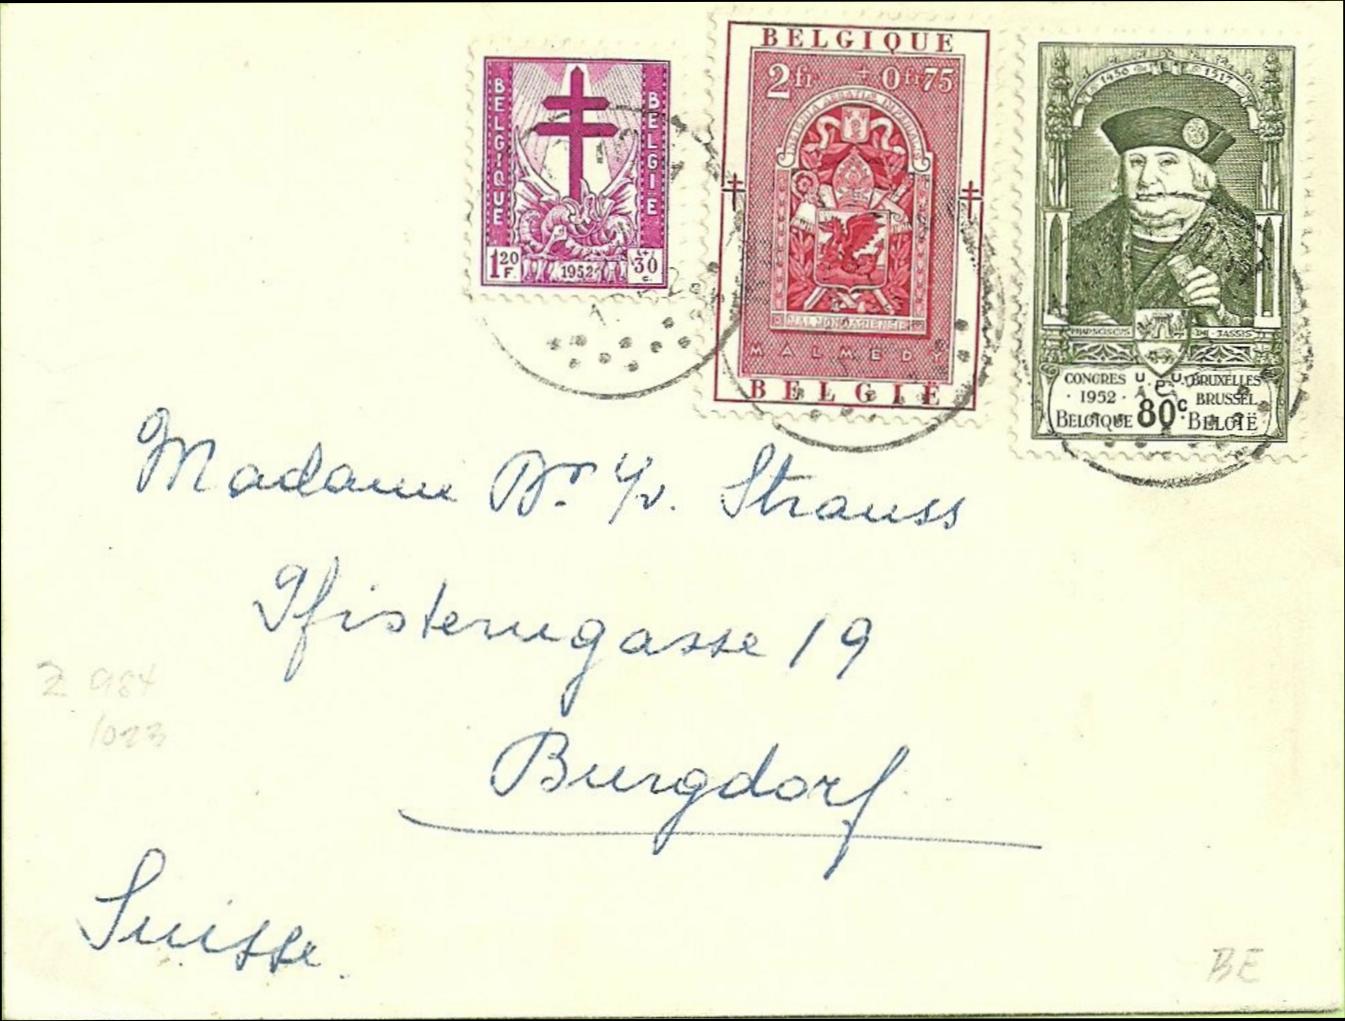 BELGIQUE
BELGIË
1 20 F
1952
+ 30 c.
BELGIQUE
2 fr + 0 fr 75
MALMEDY
BELGIË
1450 1517
FRANCISCUS DE TASSIS
CONGRES U.P.U. BRUXELLES
1952 BRUSSEL
BELGIQUE 80c BELGIË
Madame Dr Strauss
Pfisterngasse 19
Burgdorf
Suisse.
Z 984
1023
BE